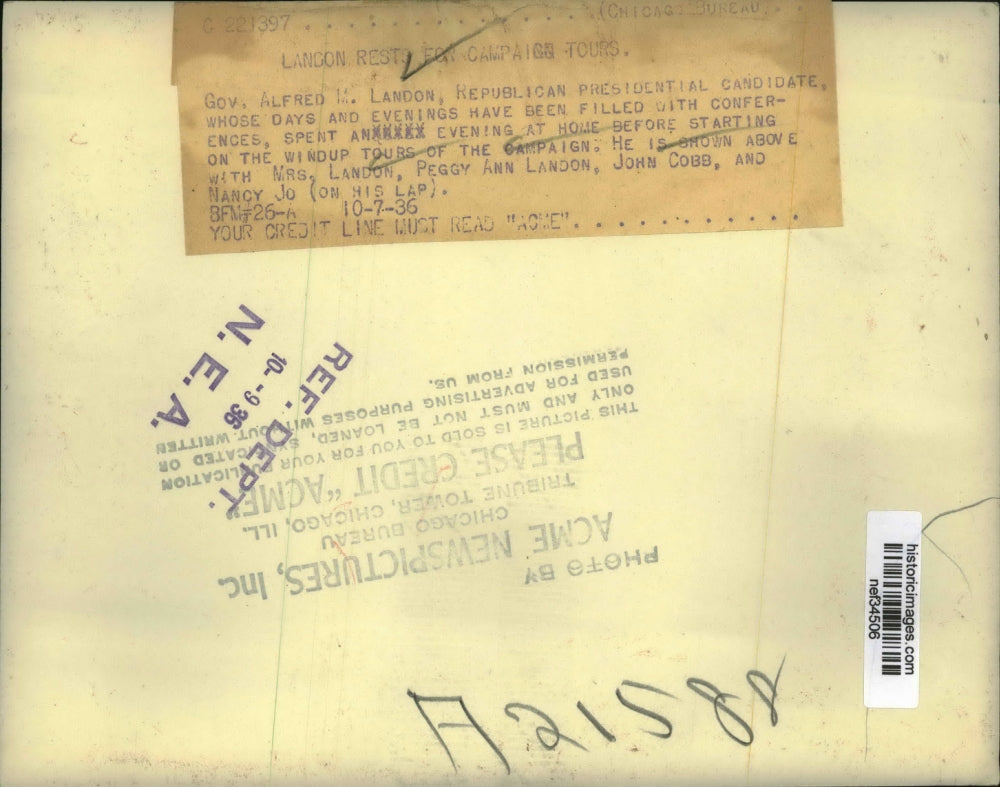 C 221397 . . . . . . . . . . . . (CHICAGO BUREAU)
LANDON RESTS FOR CAMPAIGN TOURS.
GOV. ALFRED M. LANDON, REPUBLICAN PRESIDENTIAL CANDIDATE,
WHOSE DAYS AND EVENINGS HAVE BEEN FILLED WITH CONFER-
ENCES, SPENT ANXXXXX EVENING AT HOME BEFORE STARTING
ON THE WINDUP TOURS OF THE CAMPAIGN. HE IS SHOWN ABOVE
WITH MRS. LANDON, PEGGY ANN LANDON, JOHN COBB, AND
NANCY JO (ON HIS LAP).
BFM#26-A 10-7-36
YOUR CREDIT LINE MUST READ "ACME". . . . . . . . . . . .
N. E. A.
10-- 9 36
REF. DEPT.
PHOTO BY
ACME NEWSPICTURES, Inc.
CHICAGO BUREAU
TRIBUNE TOWER, CHICAGO, ILL.
PLEASE CREDIT "ACME"
THIS PICTURE IS SOLD TO YOU FOR YOUR PUBLICATION
ONLY AND MUST NOT BE LOANED, SYNDICATED OR
USED FOR ADVERTISING PURPOSES WITHOUT WRITTEN
PERMISSION FROM US.
historicimages.com
nef34506
A21588